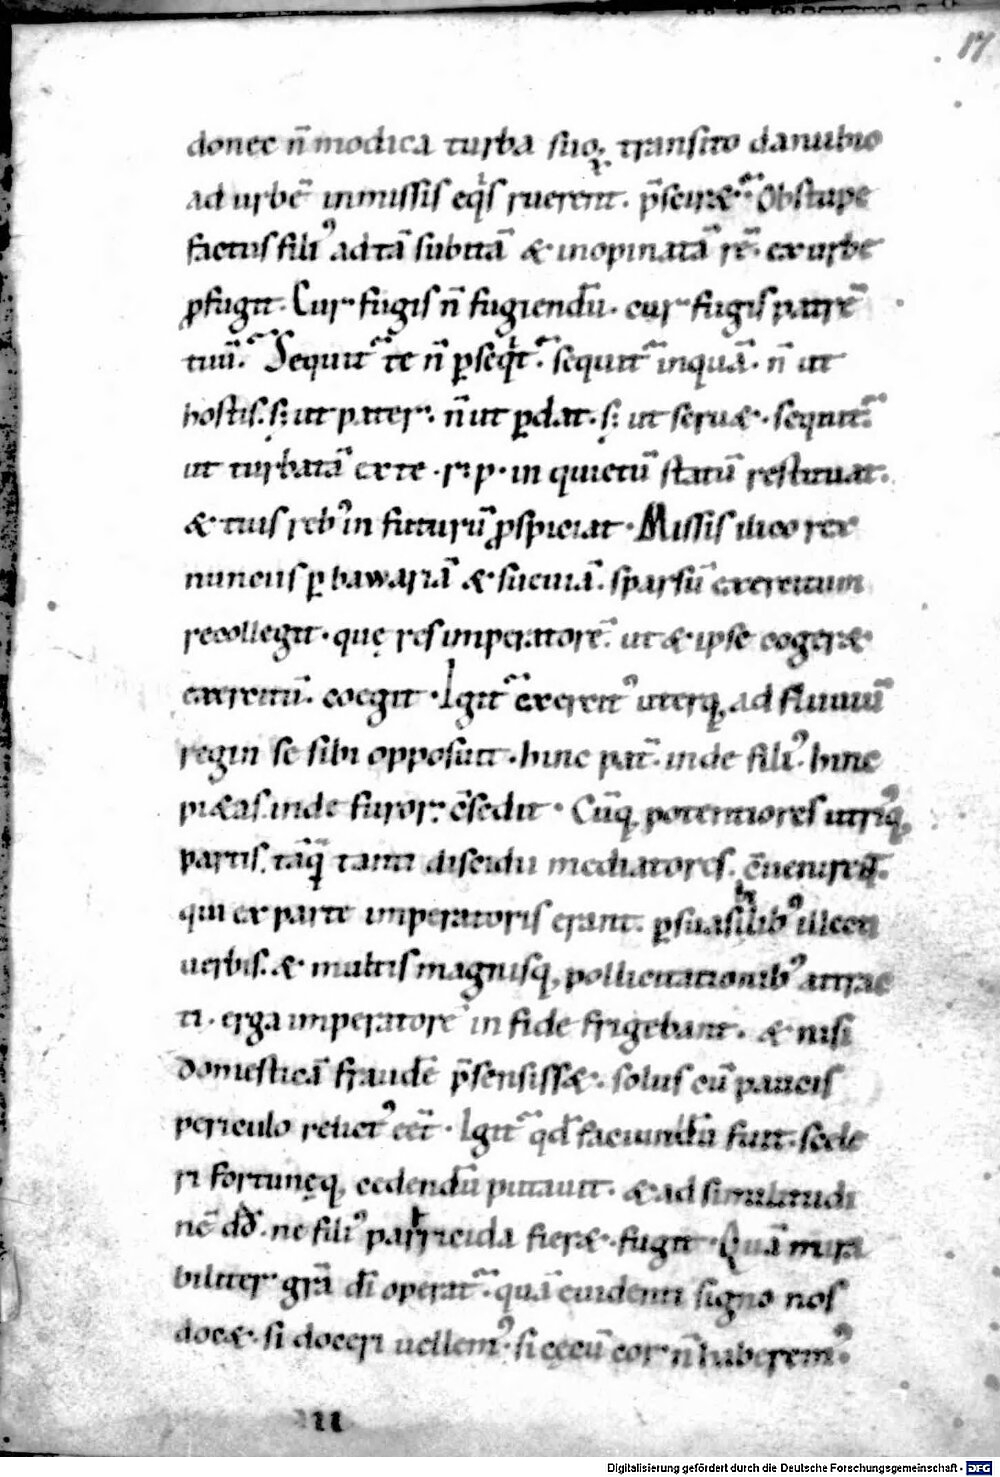 17
donec n̄ modica turba suoꝝ transito danubio
ad urbē inmissis eqͥs ruerent. p̄scirꝫ᷑ Obstupe
factus filiꝰ ad tā subitā & inopinatā rē. ex urbe
ꝓfugit. Cur fugis n̄ fugiendū. cur fugis patrē
tuū. Sequit᷑ te n̄ ꝑseqͥt᷑. sequit᷑ inquā. n̄ ut
hostis. sꝫ ut pater. n̄ ut ꝑdat. sꝫ ut seru&. sequit᷑
ut turbatā ex te .r.p. in quietū statū restituat.
& tuis rebꝰ in futurū ꝓspiciat. Missis ilico rex
nunciis ꝑ bawariā & sueuiā. sparsū exercitum
recollegit. quę res imperatorē. ut & ipse coger&
exercitū. coegit. Igit᷑ exercitꝰ uterq; ad fluuiū
regin se sibi opposuit. hinc pat̄. inde filiꝰ. hinc
pi&as. inde furor c̄sedit. Cūq; potentiores utriꝰq;
partis. tāq̄ tanti discidii mediatores. c̄uenirent.
qui ex parte imperatoris erant. ꝑsuasibilibꝰ illecti
uerbis. & multis magnisq; pollicitationibꝰ attrac
ti. erga imperatorē in fide frigebant. & nisi
domesticā fraudē p̄sensiss&. solus cū paucis
periculo relictꝰ eēt. Igit᷑ qđ faciundū fuit. scele
ri fortunęq; cedendū putauit. & ad similitudi
nē dđ. ne filiꝰ parricida fier&. fugit. Quā mira
biliter gr̄a dī operat᷑. quā euidenti signo nos
doc&. si doceri uellemꝰ. si cęcū cor n̄ haberemꝰ.
III
Digitalisierung gefördert durch die Deutsche Forschungsgemeinschaft - DFG